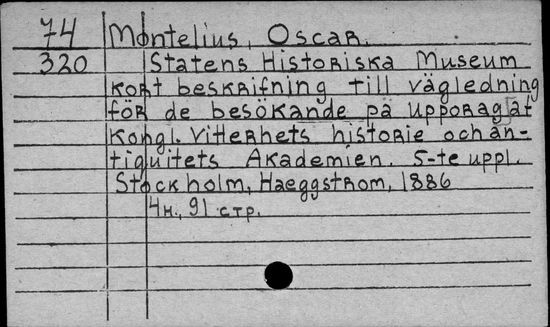 74 Montelius, Oscar.
320 Statens Historiska Museum
kort beskrifning till vägledning
för de besökande på upporaglåt
Kongl. Vitterhets historie och an-
tiquitets Akademien. 5-te uppl.
Stockholm, Haeggstrom, 1886
4н., 91 стр.